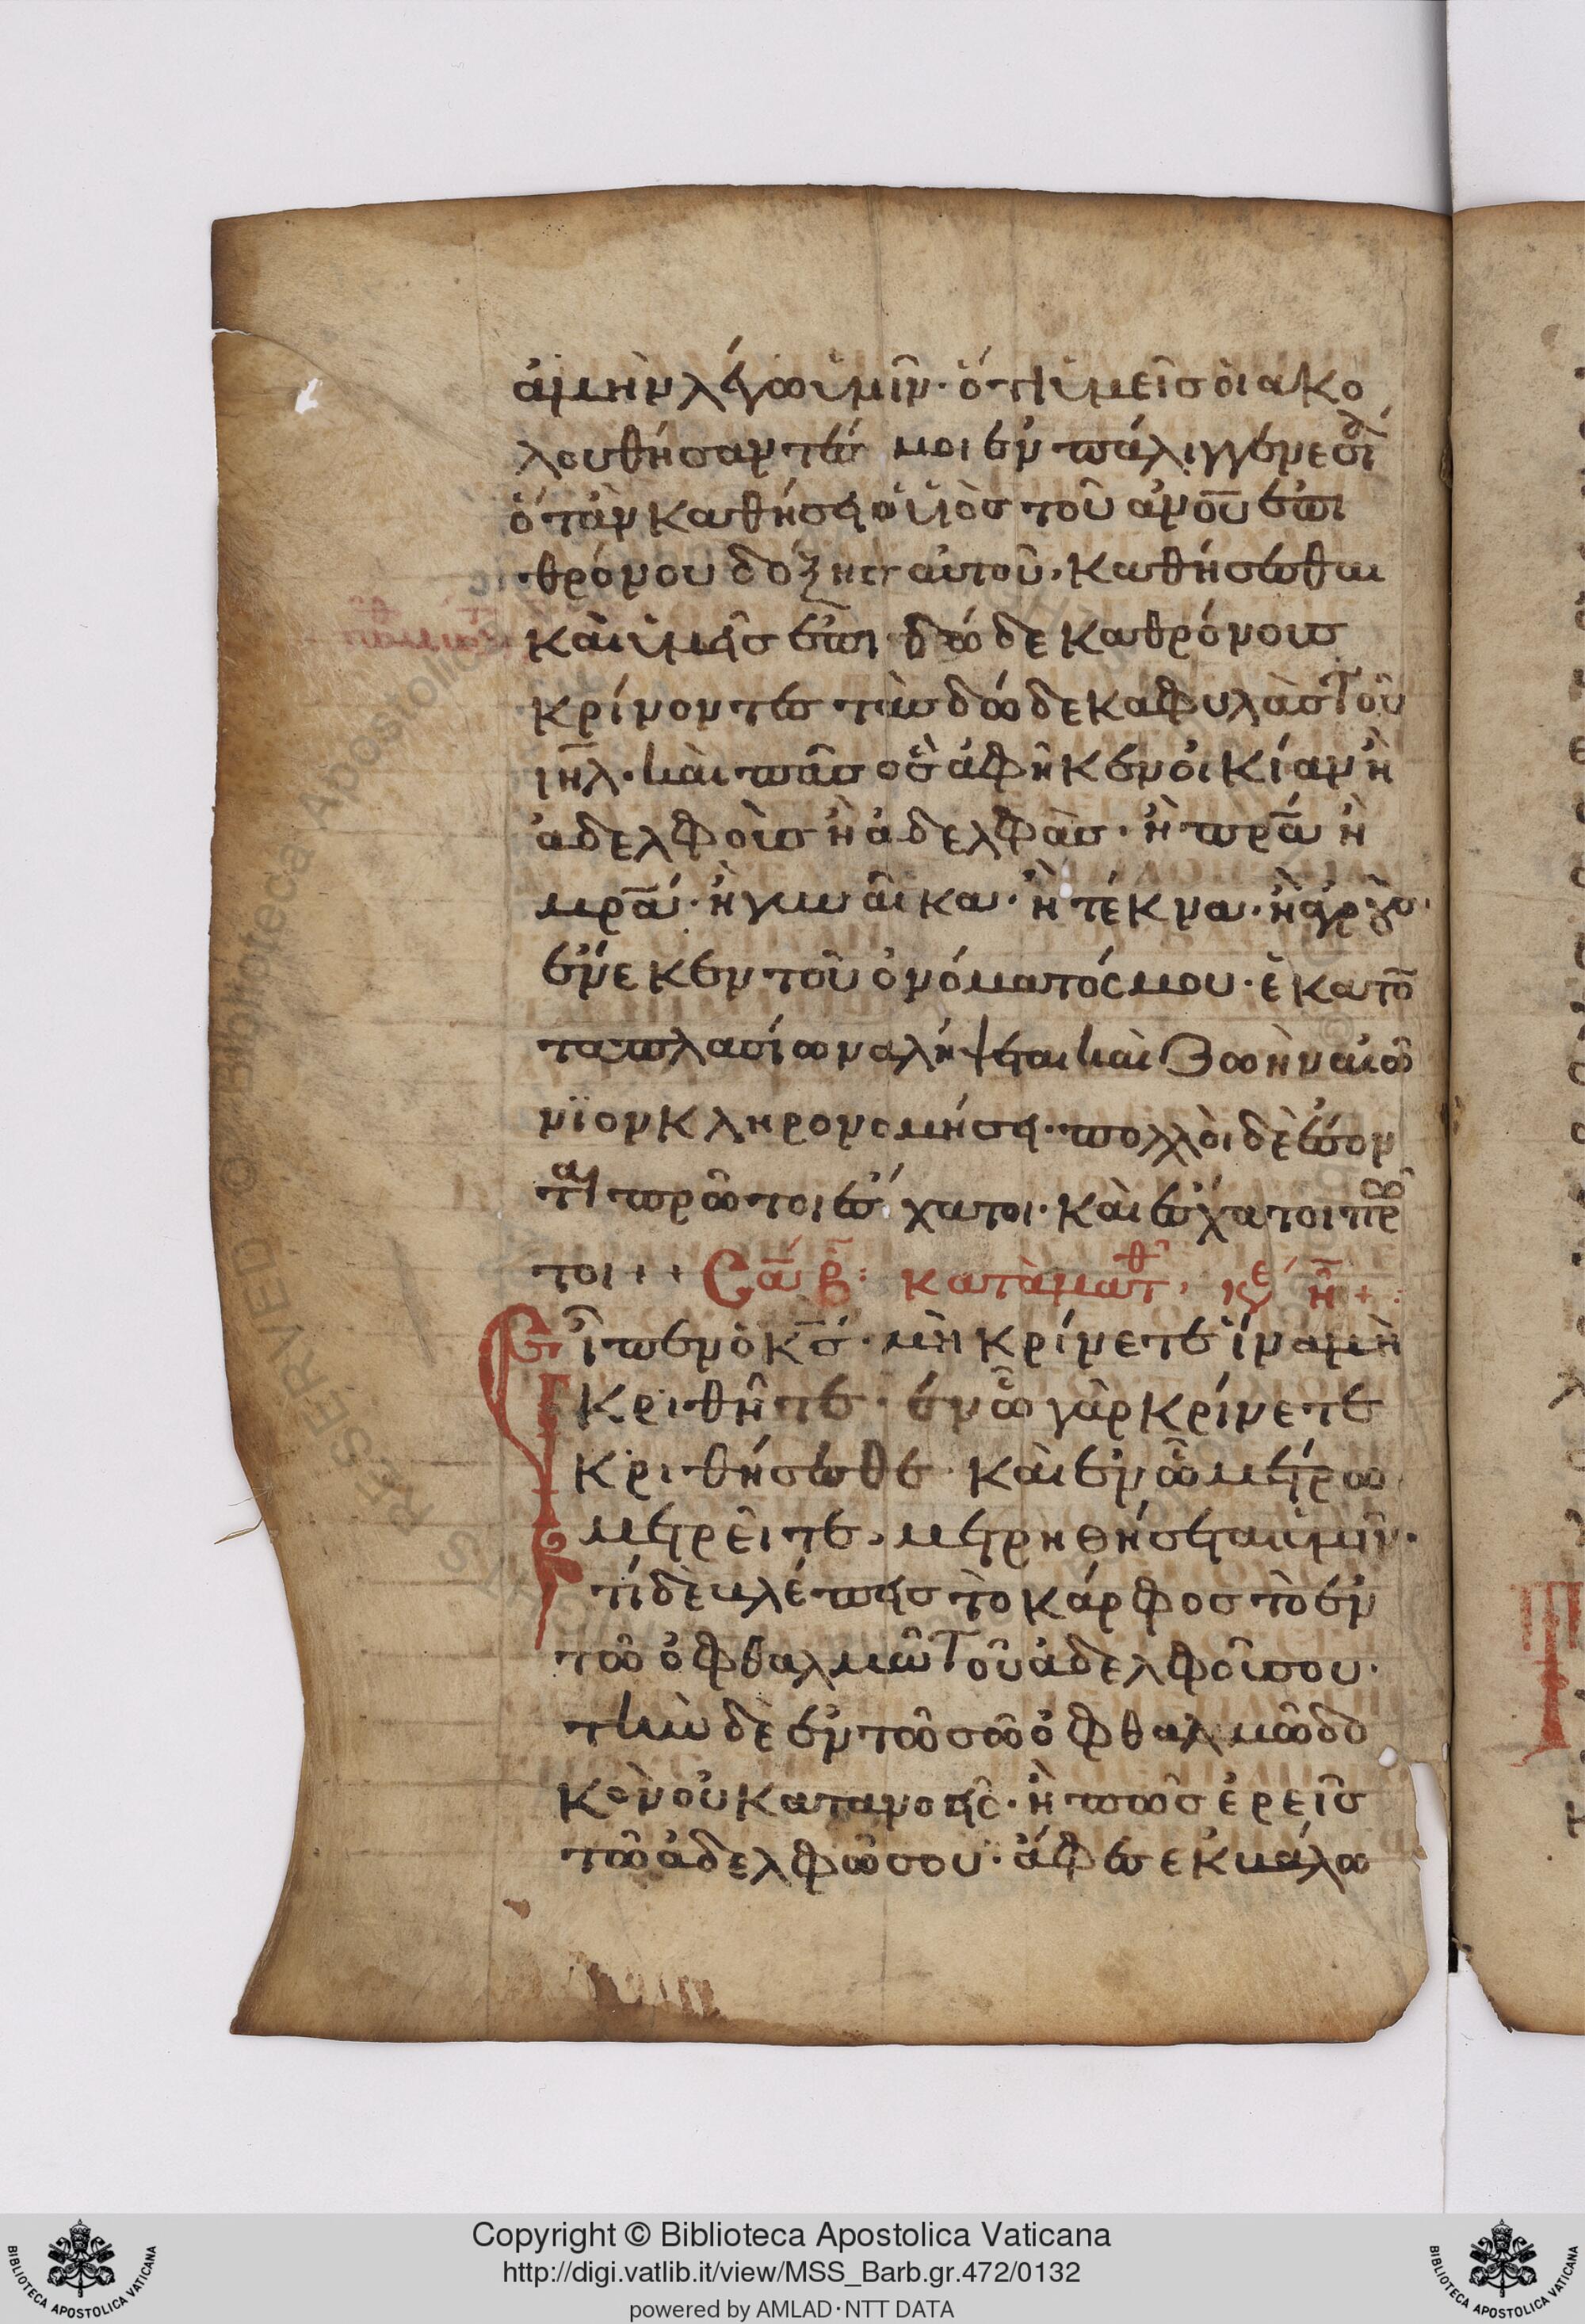 ἀμὴν λέγω ὑμῖν· ὅτι ὑμεῖς οἱ ἀκο
λουθήσαντές μοι ἐν παλιγγενεσί
ὅταν καθήσει ὁ υἱὸς τοῦ ἀνου ἐπι
θρόνου δόξης αὐτοῦ, καθήσεσθαι
καὶ ὑμεῖς ἐπι δώδεκα θρόνους
κρίνοντες τὰς δώδεκα φυλὰς τοῦ
ιηλ· καὶ πᾶς ὃς ἀφῆκεν οἰκίαν ἢ
ἀδελφοὺς ἢ ἀδελφὰς· ἢ πρα ἢ
μρα· ἢ γυναῖκα· ἢ τέκνα· ἢ ἀγρους·
ἕνεκεν τοῦ ὀνόματός μου· ἑκατο
ταπλασίωνα λήψεται καὶ ζωὴν αἰω
νιον κληρονομήσει· πολλοὶ δὲ ἔσον
ται πρῶτοι ἔσχατοι· καὶ ἔσχατοι πρω
τοι + + Σα β : κατὰ ματθ
Εἶπεν ὁ κς· μὴ κρίνετε ἵνα μὴ
κριθῆτε· ἐν ᾧ γὰρ κρίνετε
κριθήσεσθε· καὶ ἐν ᾧ μέτρω
μετρεῖτε, μετρηθήσεται ὑμῖν·
τί δὲ βλέπεις τὸ κάρφος τὸ ἐν
τῶ ὀφθαλμῶ τοῦ ἀδελφοῦ σου·
τὴν δὲ ἐν τῶ σῶ ὀφθαλμῶ δο
κὸν οὐ κατανοεῖς· ἢ πῶς ἐρεῖς
τῶ ἀδελφῶ σου· ἄφες ἐκβάλω
Copyright © Biblioteca Apostolica Vaticana
http://digi.vatlib.it/view/MSS_Barb.gr.472/0132
powered by AMLAD·NTT DATA
BIBLIOTECA APOSTOLICA VATICANA
BIBLIOTECA APOSTOLICA VATICANA